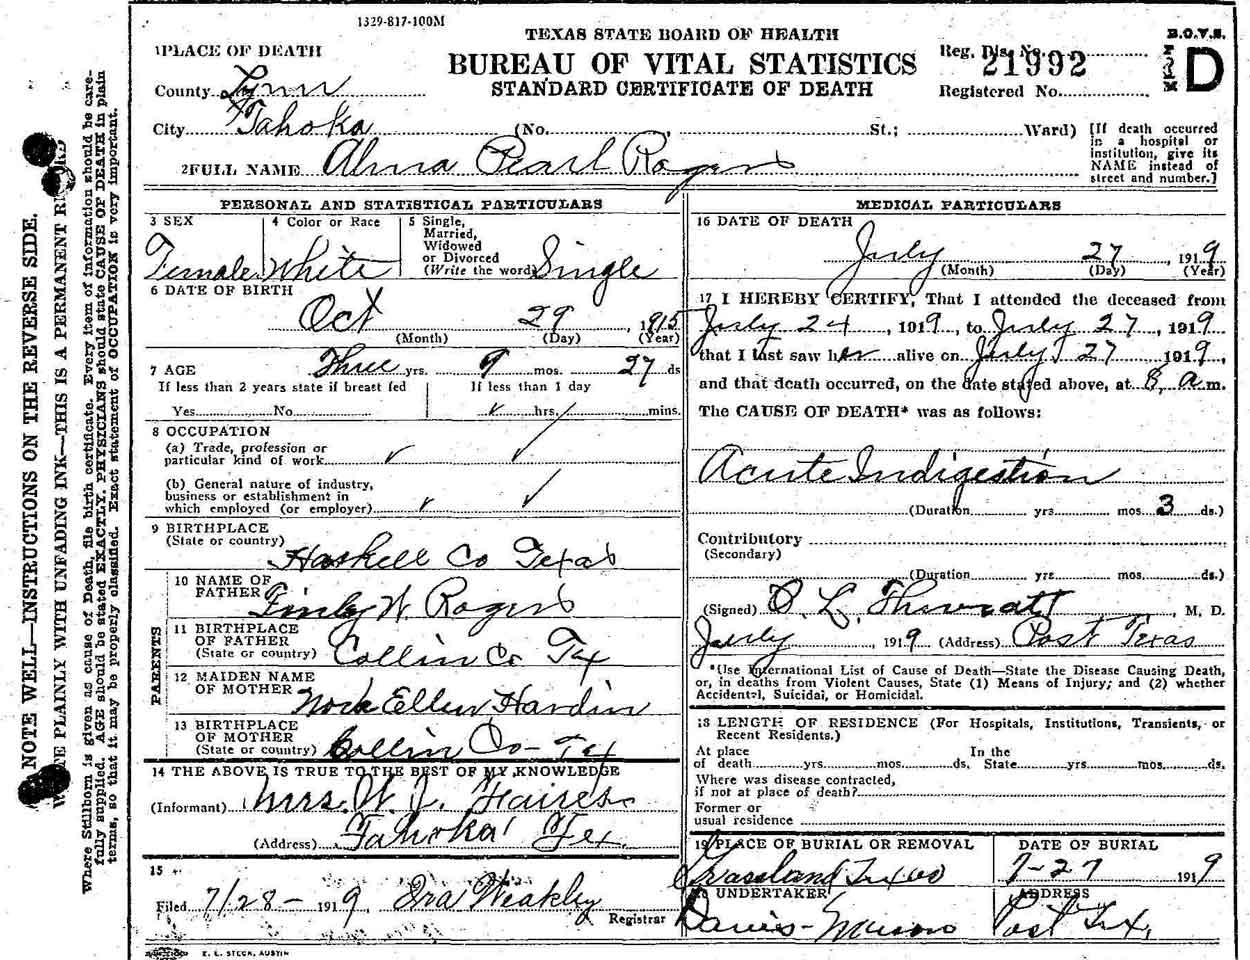 1329-817-100M
TEXAS STATE BOARD OF HEALTH
BUREAU OF VITAL STATISTICS
STANDARD CERTIFICATE OF DEATH
B.O.V.S.
FORM D
Reg. Dis. No. 21992
Registered No.
1 PLACE OF DEATH
County Lynn
City Tahoka (No. , St.; Ward)
[If death occurred in a hospital or institution, give its NAME instead of street and number.]
2 FULL NAME Alma Pearl Rogers
PERSONAL AND STATISTICAL PARTICULARS
3 SEX Female
4 Color or Race White
5 Single, Married, Widowed or Divorced (Write the word) Single
6 DATE OF BIRTH
Oct 29, 1915
(Month) (Day) (Year)
7 AGE Three yrs. 9 mos. 27 ds
If less than 2 years state if breast fed
Yes No
If less than 1 day
hrs. mins.
8 OCCUPATION
(a) Trade, profession or
particular kind of work
(b) General nature of industry,
business or establishment in
which employed (or employer)
9 BIRTHPLACE
(State or country) Haskell Co Texas
PARENTS
10 NAME OF
FATHER W. Rogers
11 BIRTHPLACE
OF FATHER
(State or country) Collin Co Tx
12 MAIDEN NAME
OF MOTHER Nora Ellen Hardin
13 BIRTHPLACE
OF MOTHER
(State or country) Collin Co - Tx
14 THE ABOVE IS TRUE TO THE BEST OF MY KNOWLEDGE
(Informant) Mrs. W. J.
(Address) Tahoka Tex
15
Filed 7/28 - 1919, Ira Weakley
Registrar
MEDICAL PARTICULARS
16 DATE OF DEATH
July 27, 1919
(Month) (Day) (Year)
17 I HEREBY CERTIFY, That I attended the deceased from
July 24, 1919, to July 27, 1919
that I last saw her alive on July 27 1919,
and that death occurred, on the date stated above, at 8, a.m.
The CAUSE OF DEATH* was as follows:
Acute Indigestion
(Duration yrs mos 3 ds.)
Contributory
(Secondary)
(Duration yrs mos. ds.)
(Signed) L. , M. D.
July 1919 (Address) Post Texas
*Use International List of Cause of Death—State the Disease Causing Death,
or, in deaths from Violent Causes, State (1) Means of Injury; and (2) whether
Accidental, Suicidal, or Homicidal.
18 LENGTH OF RESIDENCE (For Hospitals, Institutions, Transients, or
Recent Residents.)
At place of death yrs. mos. ds. In the State yrs. mos. ds.
Where was disease contracted,
if not at place of death?
Former or
usual residence
19 PLACE OF BURIAL OR REMOVAL
Grassland Texas
DATE OF BURIAL
7-27 1919
20 UNDERTAKER
Davies -
ADDRESS
Post Tex.
E. L. STECK, AUSTIN
NOTE WELL—INSTRUCTIONS ON THE REVERSE SIDE.
PLAINLY WITH UNFADING INK—THIS IS A PERMANENT
Where Stillborn is given as cause of Death, file birth certificate. Every item of information should be care-
fully supplied. AGE should be stated EXACTLY. PHYSICIANS should state CAUSE OF DEATH in plain
terms, so that it may be properly classified. Exact statement of OCCUPATION is very important.